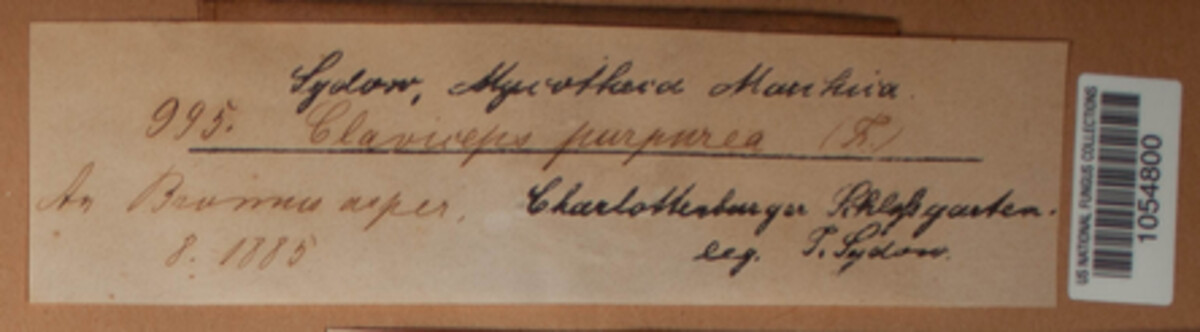 Sydow, Mycotheca Marchica.
995. Claviceps purpurea (F.)
An Bromus asper. Charlottenburger Schloßgarten.
8. 1885 leg. P. Sydow.
US NATIONAL FUNGUS COLLECTIONS
1054800